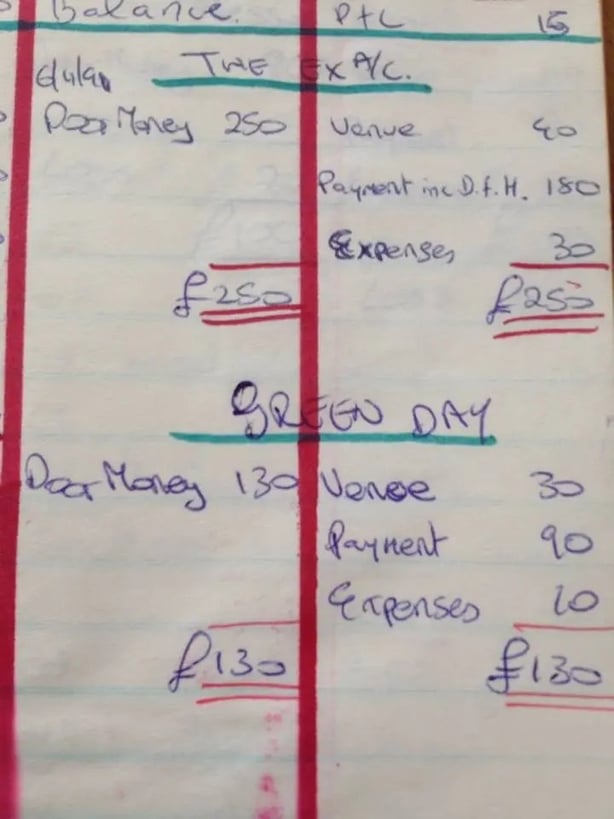 Balance. P+L 15
THE EX A/C.
Door Money 250 Venue 40
Payment inc D.f.H. 180
Expenses 30
£250 £250
GREEN DAY
Door Money 130 Venue 30
Payment 90
Expenses 10
£130 £130